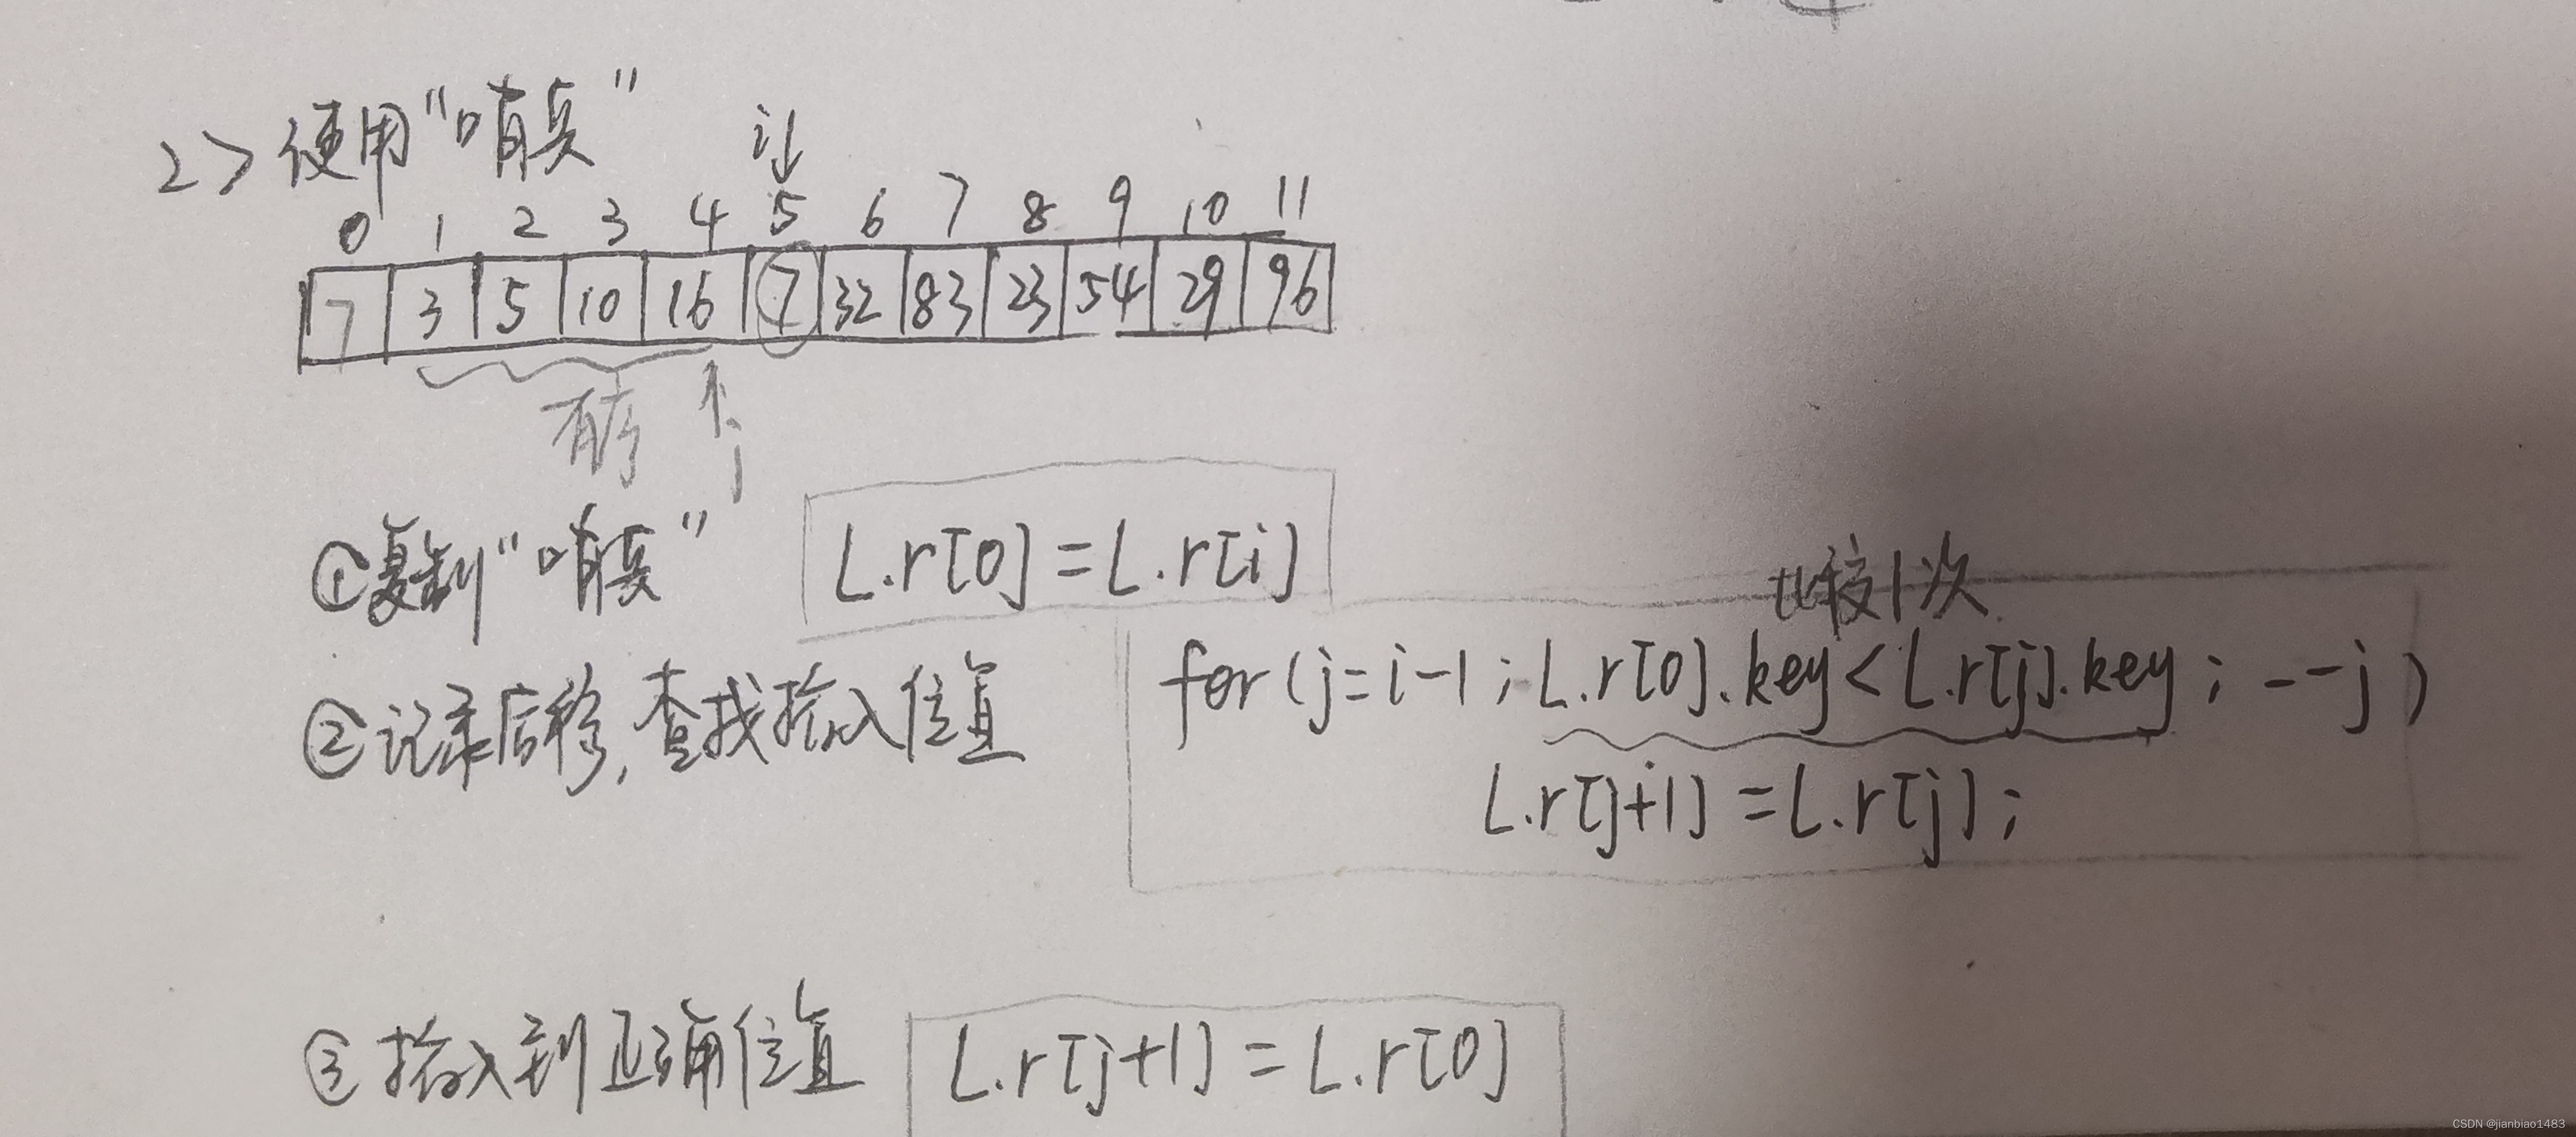 2> 使用"哨兵"
i↓
0 1 2 3 4 5 6 7 8 9 10 11
7 3 5 10 16 7 32 83 23 54 29 96
有序 ↑
j
①复制"哨兵" L.r[0]=L.r[i]
比较1次
②记录后移,查找插入位置 for(j=i-1;L.r[0].key<L.r[j].key;--j)
L.r[j+1]=L.r[j];
③插入到正确位置 L.r[j+1]=L.r[0]
CSDN @jianbiao1483